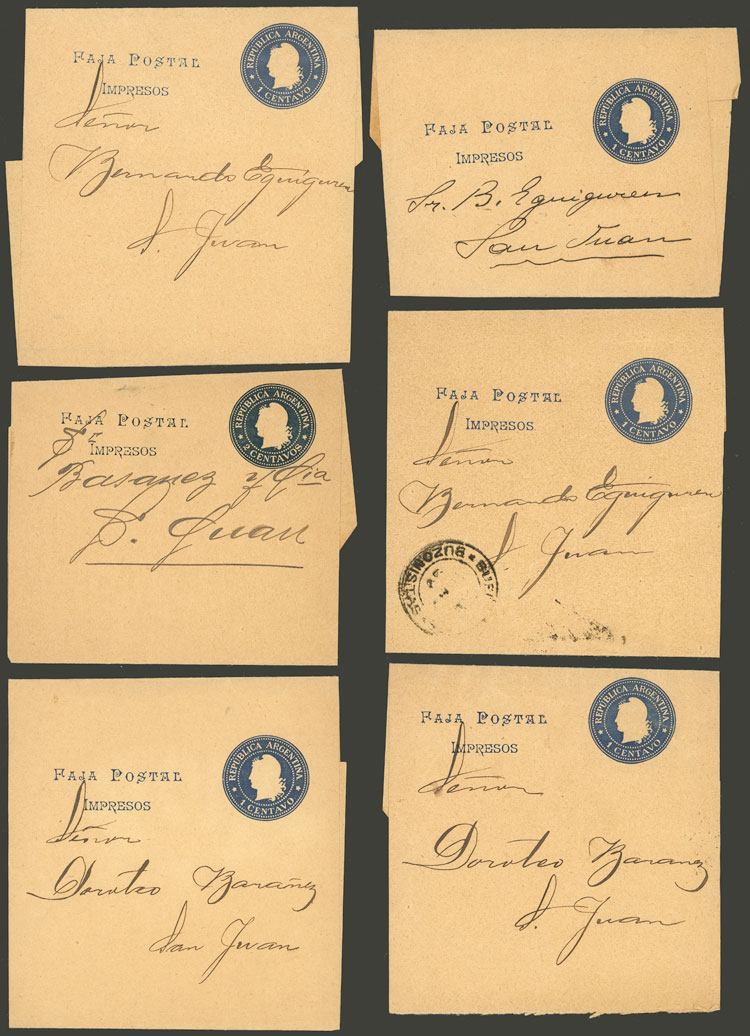 REPÚBLICA ARGENTINA
1 CENTAVO
FAJA POSTAL
IMPRESOS
Señor
Bernardo Eguiguren
S. Juan
REPÚBLICA ARGENTINA
1 CENTAVO
FAJA POSTAL
IMPRESOS
Sr. B. Eguiguren
San Juan
REPÚBLICA ARGENTINA
2 CENTAVOS
FAJA POSTAL
IMPRESOS
Sr
Basanez y Cia
S. Juan
REPÚBLICA ARGENTINA
1 CENTAVO
FAJA POSTAL
IMPRESOS
Señor
Bernardo Eguiguren
S. Juan
BUZONISTAS
REPÚBLICA ARGENTINA
1 CENTAVO
FAJA POSTAL
IMPRESOS
Señor
Doroteo Barañez
San Juan
REPÚBLICA ARGENTINA
1 CENTAVO
FAJA POSTAL
IMPRESOS
Señor
Doroteo Baranez
S. Juan